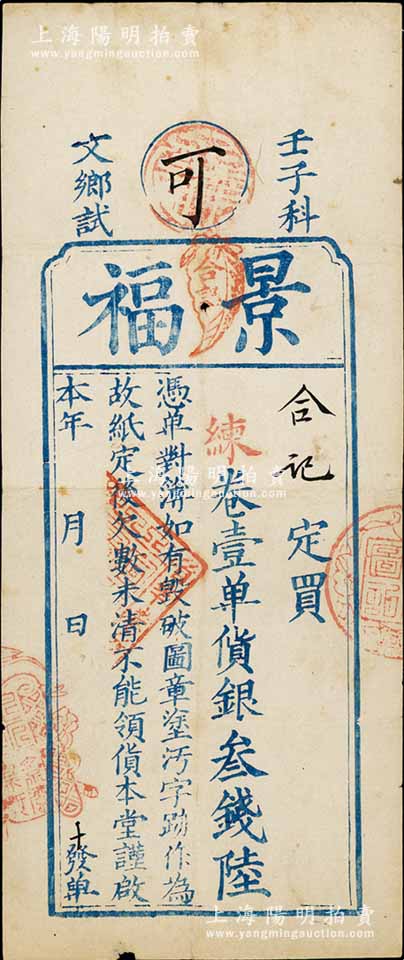 上海陽明拍賣
www.yangmingauction.com
壬子科
可
文鄉試
景福
合記
合記 定買
練
卷壹单貨銀叁錢陸
憑单對簿如有毀破圖章塗污字跡作為
故紙定後欠數未清不能領貨本堂謹啟
本年 月 日
十發单
上海陽明拍賣
www.yangmingauction.com
上海陽明拍賣
www.yangmingauction.com